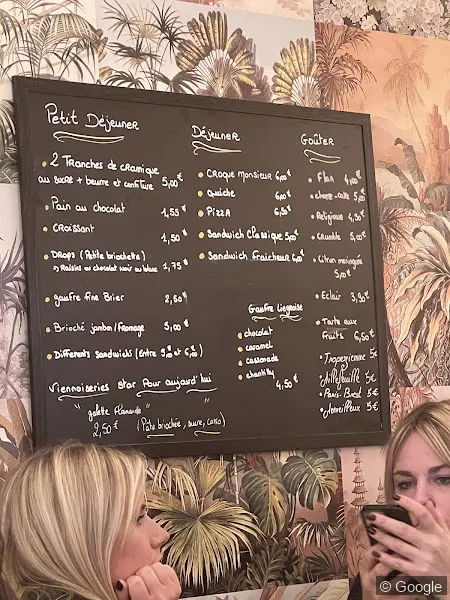 Petit Déjeuner
• 2 Tranches de cramique
au sucre + beurre et confiture 5,00€
• Pain au chocolat 1,55€
• Croissant 1,50€
• Drops (Petite briochette)
→ Raisins ou chocolat noir ou blanc 1,75€
• gaufre fine Brier 2,50€
• Brioché jambon/fromage 3,00€
• Différents Sandwichs (Entre
Viennoiseries star Pour aujourd'hui
" galette flamande "
2,50€ (Pâte briochée, sucre,
Déjeuner
• Croque monsieur 6,00€
• Quiche 6,00€
• Pizza 6,50€
• Sandwich Classique 5,00€
• Sandwich Fraicheur
Gaufre Liégeoise
• chocolat
• caramel
• cassonade
• chantilly
4,50€
Goûter
• Flan
• cheese-cake
• Religieuse 4,50€
• Crumble 5,00€
• Citron meringuée
5,00€
• Eclair 3,90€
• Tarte aux
fruits 6,50€
• Tropezienne 5€
• Millefeuille 5€
• Paris-Brest 5€
• Merveilleux 5€
© Google